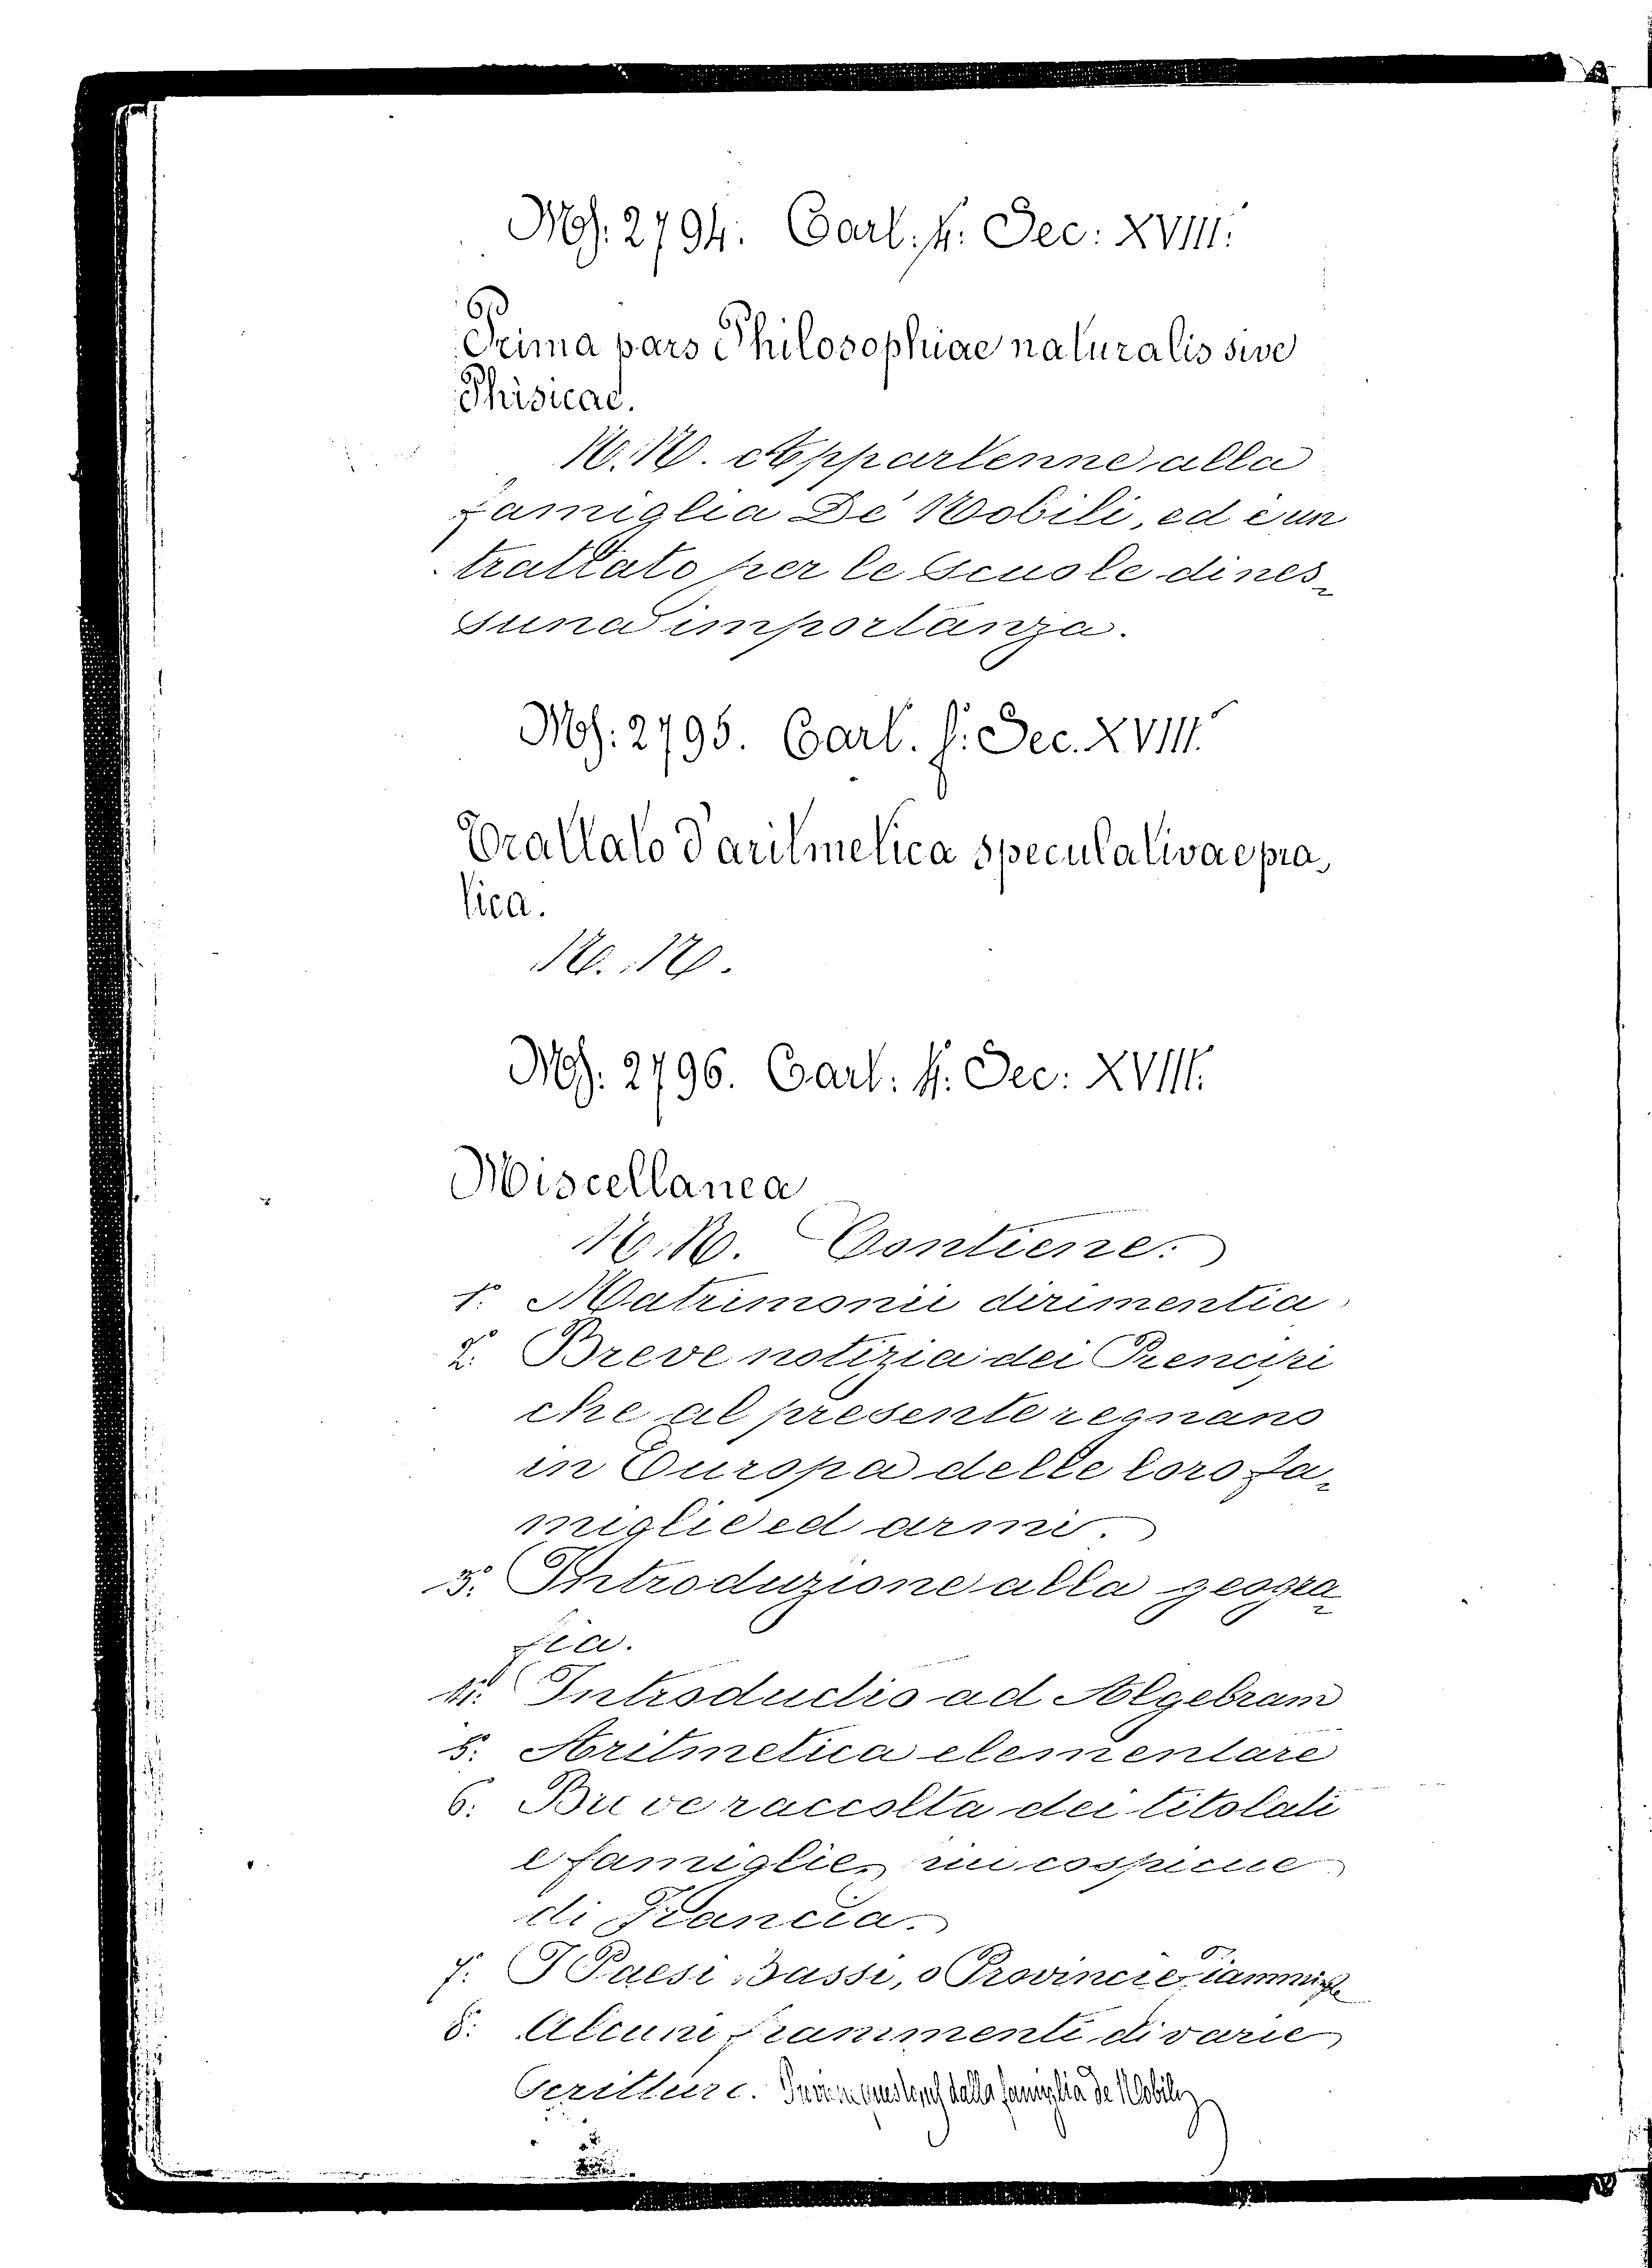 Ms: 2794. Cart. 4: Sec: XVIII.
Prima pars Philosophiae naturalis sive
Phisicae.
N. N. Appartenne alla
famiglia De' Nobili, ed è un
trattato per le Scuole di nes-
suna importanza.
Ms: 2795. Cart. f: Sec. XVIII.
Trattato d'aritmetica speculativa e pra-
tica.
N. N.
Ms: 2796. Cart: 4. Sec: XVIII.
Miscellanea
N. N. Contiene:
1. Matrimonii dirimentia
2. Breve notizia dei Prencipi
che al presente regnano
in Europa delle loro fa-
miglie ed armi.
3. Introduzione alla geogra-
fia.
4. Introductio ad Algebram
5. Aritmetica elementare
6: Breve raccolta dei titolati
e famiglie più cospicue
di Francia.
7. I Paesi Bassi, o Provincie Fiamminghe
8: Alcuni frammenti di varie
Scritture. dalla famiglia de Nobili